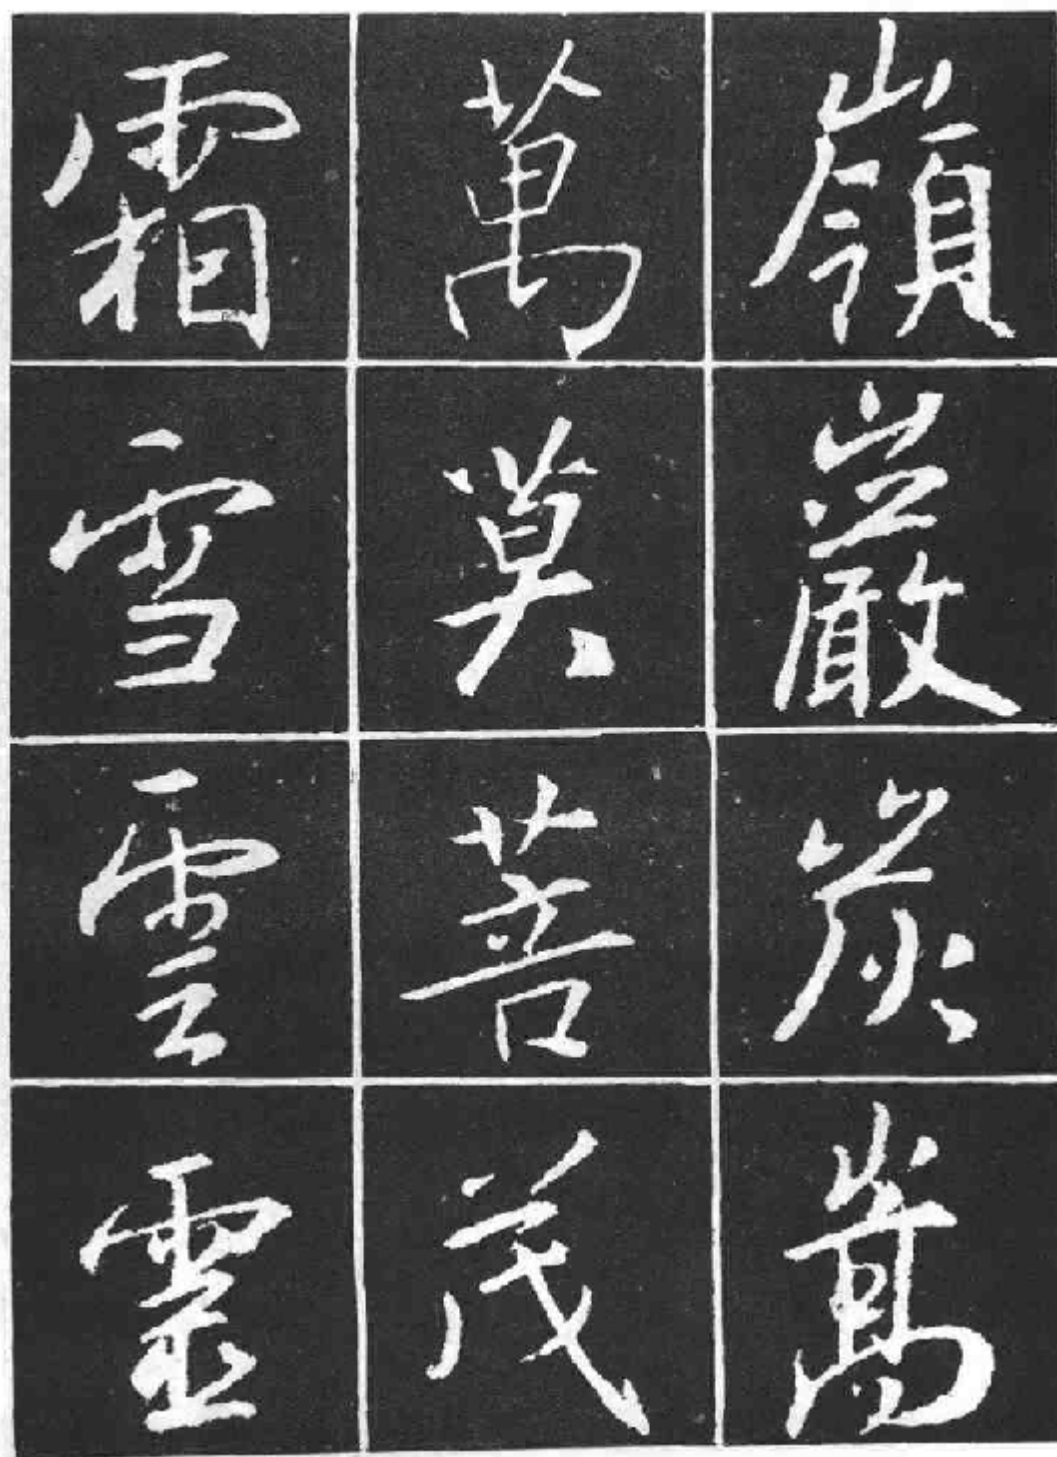 嶺巖炭嵩
萬莫菩茂
霜雪雲靈